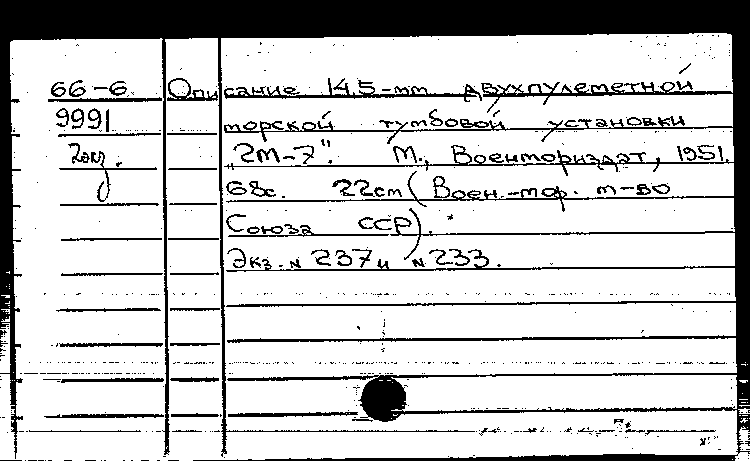 66-6 Описание 14,5-mm двухпулеметной
9991 морской тумбовой установки
2экз. „2М-7". М., Военмориздат, 1951.
68с. 22cm (Воен.-мор. м-во
Союза ССР).
Экз. N 237 и N 233.